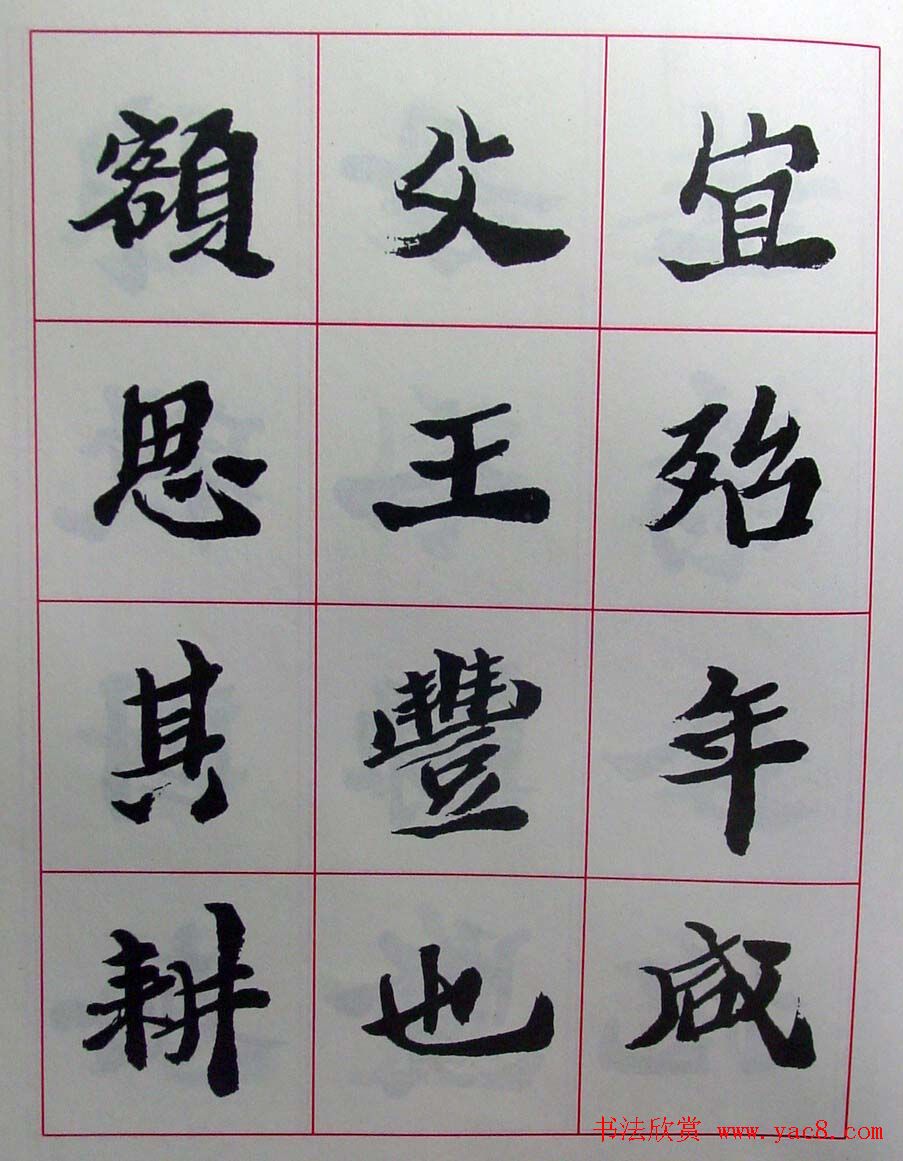 宜殆年咸
父王豐也
額思其耕
书法欣赏 www.yac8.com